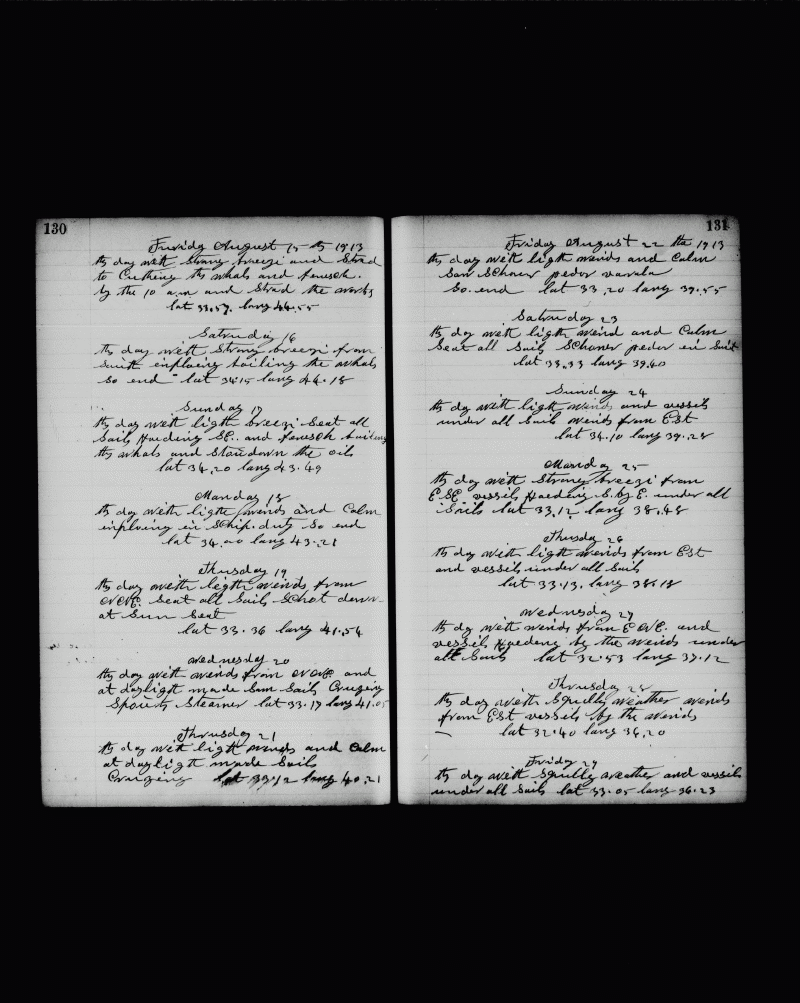 130
Friday August 15 th 1913
th day weth Strong breezi and Strad
to Cutking th whals and feneseh.
by the 10 a.m and Strad the works
lat 33.57. lang 44.55
Saturday 16
th day weth Strong breezi from
South inploing boiling the whals
So end lat 34.15 lang 44.18
Sunday 17
th day weth ligth breezi Seat all
Sails Haeding SE. and fenesch boiling
th whals and Stowdown the oils
lat 34.20 lang 43.49
Manday 18
th day with ligth winds and Calm
inploing in Schip. duty So end
lat 34.00 lang 43.21
Thusday 19
th day weith ligth weinds from
Seat all Sails Schot down
at Sun Seat
lat 33.36 lang 41.54
wednesday 20
th day weth weinds from and
at dayligth made Sam Sails Cruzing
Spouts Steamer lat 33.17 lang 41.05
Thrusday 21
th day weth ligth weinds and Calm
at dayligth made Sails
Cruizing lat 33.12 lang 40.21
131
Friday August 22 the 1913
th day weth ligth weinds and Calm
Saw Schoner pedor varala
So. end lat 33.20 lang 39.55
Saturday 23
th day weth ligth weind and Calm
Seat all Sails Schoner pedor in Sait
lat 33.33 lang 39.40
Sunday 24
th day with ligth weinds and vessils
under all Sails weinds from Est
lat 34.10 lang 39.28
Manday 25
th day with Strong breezi from
ESE vessils Haeding S.by E. under all
Sails lat 33.12 lang 38.48
Thusday 26
th day with ligth weinds from Est
and vessils under all Sails
lat 33.13. lang 38.18
wednusday 27
th day weth weinds from and
vessils Haeding by the weinds under
all Sails lat 32.53 lang 37.12
Thrusday 28
th day weith Squilly weather weinds
from Est vessils by the weinds
lat 32.40 lang 36.20
Friday 29
th day weith Squilly weather and vessils
under all Sails lat 33.05 lang 36.23